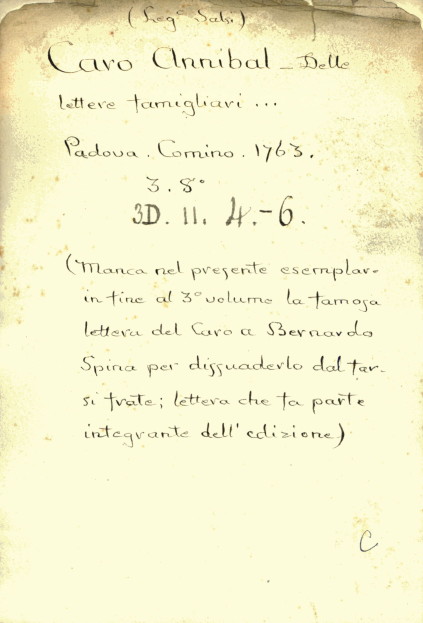 (Leg.º Salsi)
Caro Annibal - Delle
lettere famigliari ...
Padova. Comino. 1763.
3. 8º
3D. 11. 4.-6.
(Manca nel presente esemplare
in fine al 3º volume la famosa
lettera del Caro a Bernardo
Spina per dissuaderlo dal far-
si frate; lettera che fa parte
integrante dell' edizione)
C